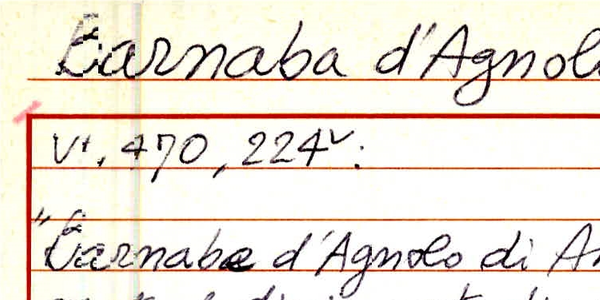 Barnaba d'Agnolo
Vt. 470, 224v:
"Barnaba d'Agnolo di An